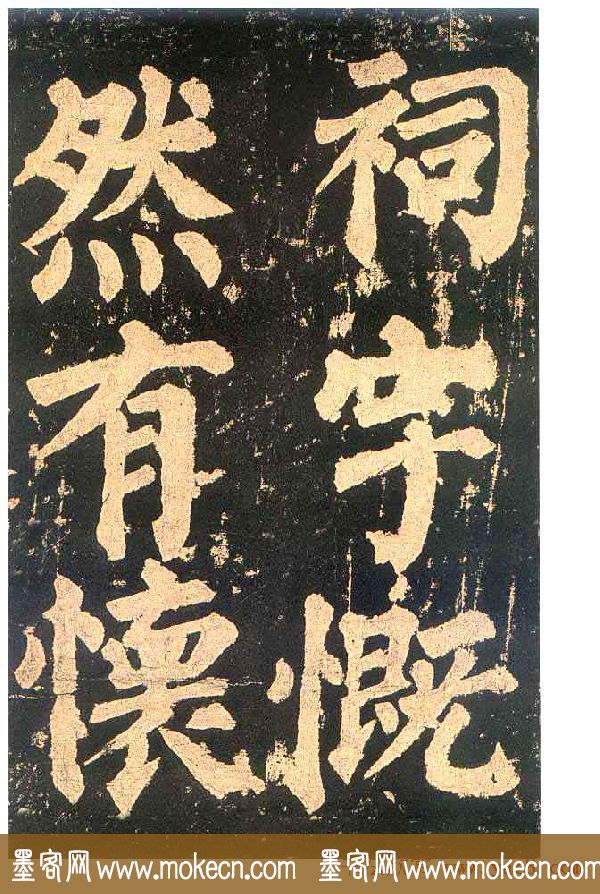 祠宇慨
然有懷
墨客网 www.mokecn.com 墨客网 www.mokecn.com